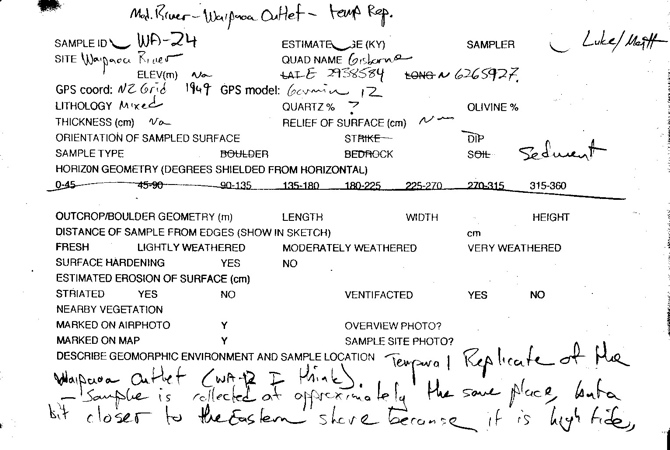 Mod. River - Waipaoa Outlet - temp Rep.
SAMPLE ID WA-24 ESTIMATE GE (KY) SAMPLER Luke/Matt
SITE Waipaoa River QUAD NAME Gisborne
ELEV(m) Na LAT E 2938584 LONG N 6265927
GPS coord: NZ Grid 1949 GPS model: Garmin 12
LITHOLOGY Mixed QUARTZ % ? OLIVINE %
THICKNESS (cm) Na RELIEF OF SURFACE (cm)
ORIENTATION OF SAMPLED SURFACE STRIKE DIP
SAMPLE TYPE BOULDER BEDROCK SOIL Sediment
HORIZON GEOMETRY (DEGREES SHIELDED FROM HORIZONTAL)
0-45 45-90 90-135 135-180 180-225 225-270 270-315 315-360
OUTCROP/BOULDER GEOMETRY (m) LENGTH WIDTH HEIGHT
DISTANCE OF SAMPLE FROM EDGES (SHOW IN SKETCH) cm
FRESH LIGHTLY WEATHERED MODERATELY WEATHERED VERY WEATHERED
SURFACE HARDENING YES NO
ESTIMATED EROSION OF SURFACE (cm)
STRIATED YES NO VENTIFACTED YES NO
NEARBY VEGETATION
MARKED ON AIRPHOTO Y OVERVIEW PHOTO?
MARKED ON MAP Y SAMPLE SITE PHOTO?
DESCRIBE GEOMORPHIC ENVIRONMENT AND SAMPLE LOCATION Temporal Replicate of the
Waipaoa Outlet (WA-12 I think).
- Sample is collected at approximately the same place, but a
bit closer to the Eastern shore because it is high tide,